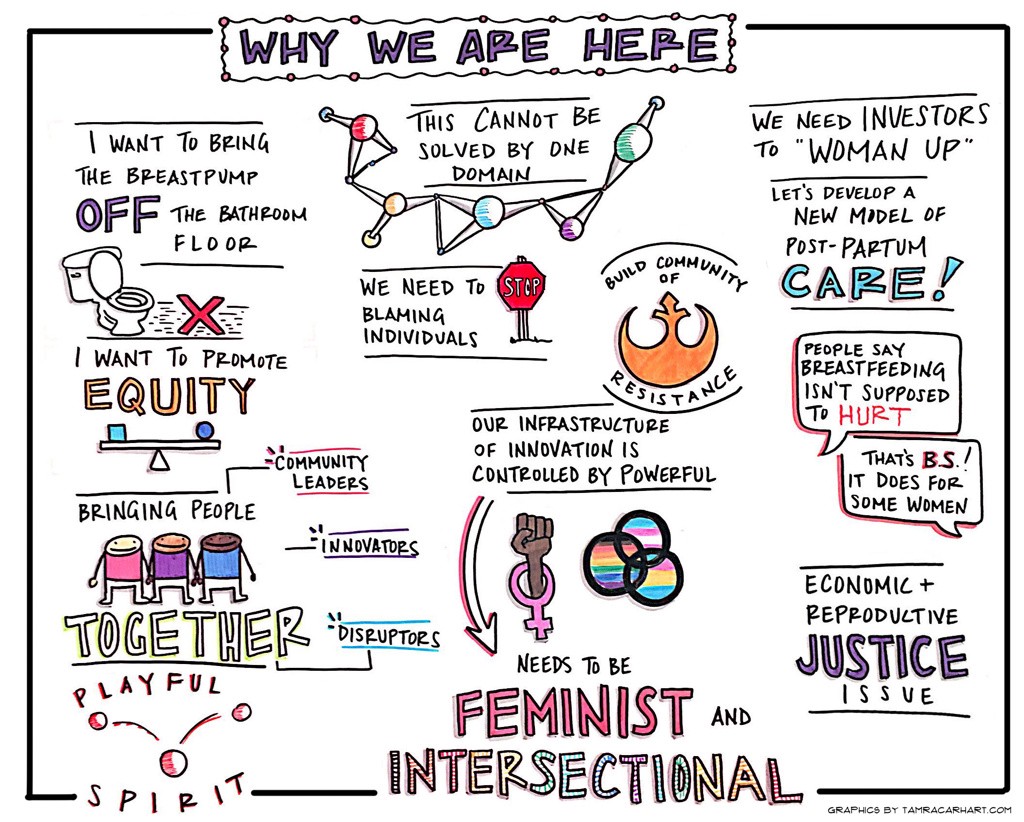 WHY WE ARE HERE
I WANT TO BRING
THE BREASTPUMP
OFF THE BATHROOM
FLOOR
I WANT TO PROMOTE
EQUITY
COMMUNITY
LEADERS
BRINGING PEOPLE
INNOVATORS
TOGETHER
DISRUPTORS
PLAYFUL
SPIRIT
THIS CANNOT BE
SOLVED BY ONE
DOMAIN
WE NEED TO STOP
BLAMING
INDIVIDUALS
BUILD COMMUNITY
OF
RESISTANCE
OUR INFRASTRUCTURE
OF INNOVATION IS
CONTROLLED BY POWERFUL
NEEDS TO BE
FEMINIST AND
INTERSECTIONAL
WE NEED INVESTORS
TO "WOMAN UP"
LET'S DEVELOP A
NEW MODEL OF
POST-PARTUM
CARE!
PEOPLE SAY
BREASTFEEDING
ISN'T SUPPOSED
TO HURT
THAT'S B.S.!
IT DOES FOR
SOME WOMEN
ECONOMIC +
REPRODUCTIVE
JUSTICE
ISSUE
GRAPHICS BY TAMRACARHART.COM